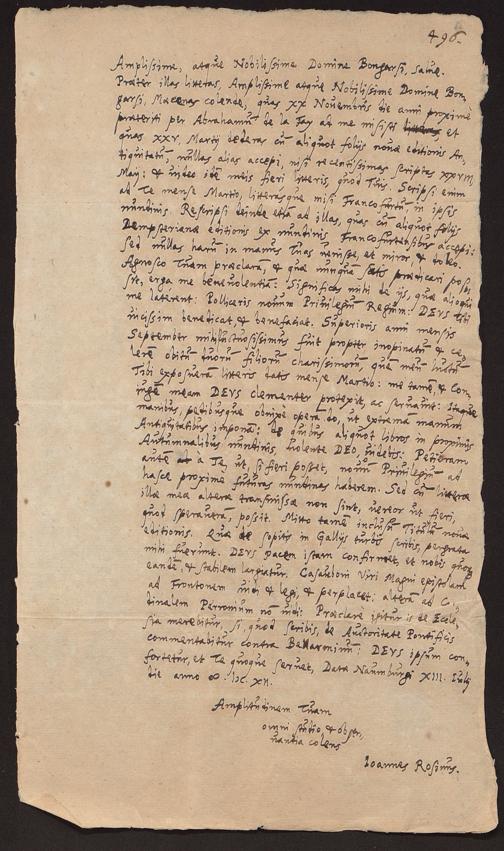 496.
Amplissime, atque Nobilissime Domine Bongarsi, Salue.
Præter illas litteras, Amplissime atque Nobilissime Domine Bon,
garsi, Mæcenas colende, quas XX Nouembris die anni proxime
præteriti per Abrahamum de la Fay ad me misisti et
quas XXV. Martij dederas cū aliquot folijs nouæ editionis An,
tiquitatum, nullas alias accepi, nisi recentissimas scriptas XXVIII
Maij: & inde idē meis fieri litteris, quod Tuis. Scripsi enim
ad Te mense Martio, litterasque misi Francofurtum in ipsis
nundinis. Rescripsi deinde etiā ad illas, quas cū aliquot folijs
Dempsterianæ editionis ex nundinis Francofurtensibus accepi:
Sed nullas harū in manus Tuas venisse, et miror, & doleo.
Agnosco Tuam præclarā, & quæ nunquā satis prædicari pos,
sit, erga me beneuolentiā: Significas mihi de ijs, quæ alioqui
me laterent: Polliceris nouum Priuilegium Regium: DEVS Tibi
vicissim benedicat, & benefaciat. Superioris anni mensis
September mihi luctuosissimus fuit propter inopinatū & ce,
lerē obitum duorum filiorum charissimorum, quē meū luctum
Tibi exposueram litteris datis mense Martio: me tamē, & Con,
iugē meam DEVS clementer protexit, ac seruauit: Itaque
manibus, pedibusque obnixe operā do, ut extremā manum
Antiquitatibus imponā: de quibus aliquot libros in proximis
Autumnalibus nundinis, volente DEO, videbis: Petieram
autē à Te, ut, si fieri posset, nouum Priuilegium ad
hasce proxime futuras nundinas haberem. Sed cū litteræ
illæ meæ alteræ transmissæ non sint, vereor ut fieri,
quod speraueram, possit. Mitto tamē inclusum Titulum nouæ
editionis. Quæ de sopitis in Gallijs turbis scribis, pergrata
mihi fuerunt. DEVS pacem istam confirmet, et nobis quoq
eandē, & stabilem largiatur. Casauboni Viri Magni epistolam
ad Frontonem vidi & legi, & perplacet: alteram ad C
dinalem Perronium nō vidi: Præclare igitur is de Eccle,
sia merebitur, si, quod scribis, de Autoritate Pontificis
commentabitur contra Bellarminum: DEVS ipsum con,
fortetur, et Te quoque seruet, Data Naumburgi XIII. Iulij
die anno ∞. IƆC. XII.
Amplitudinem Tuam
omni studio, & obser,
uantia colens
Ioannes Rosinus.